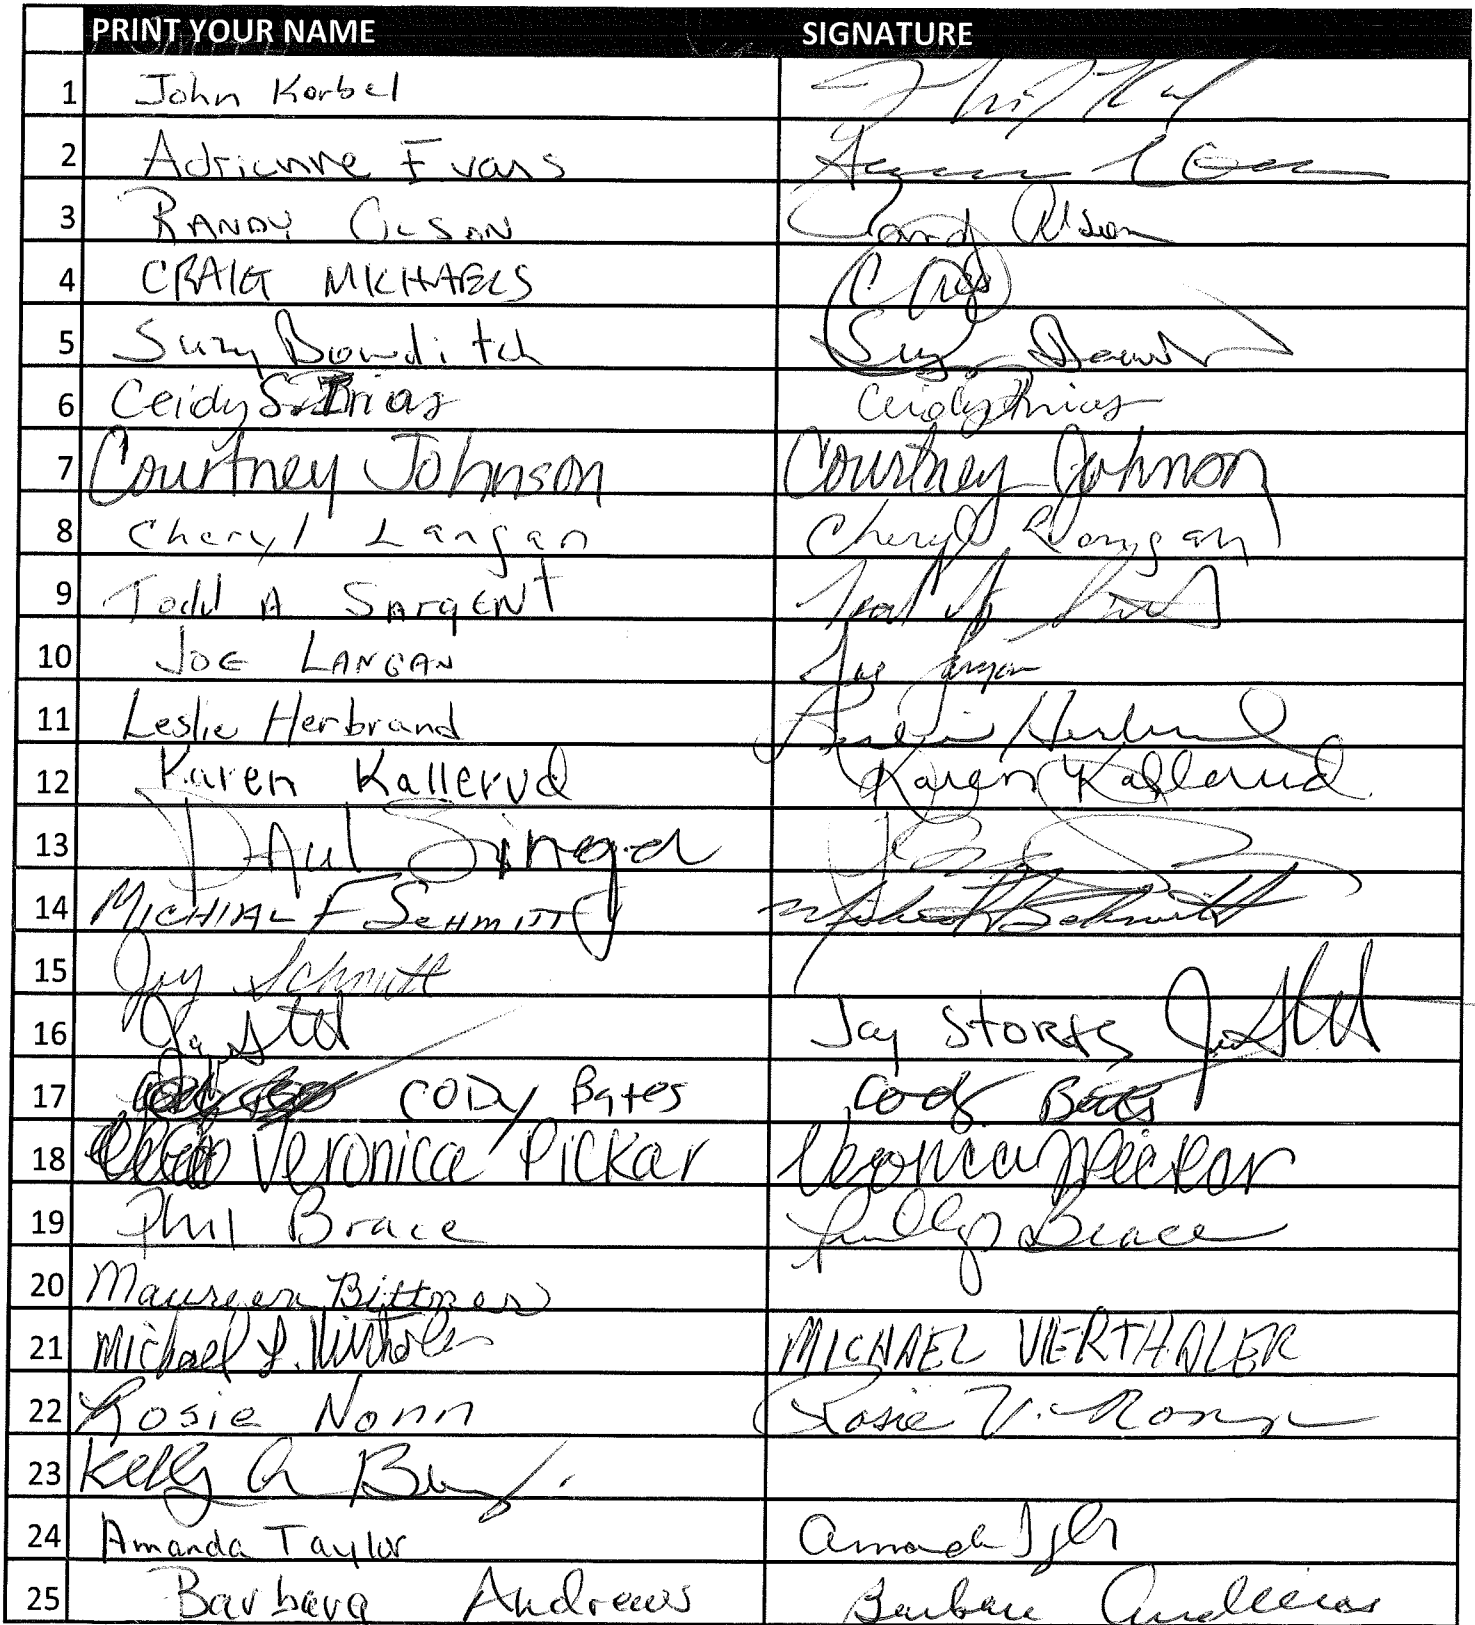 PRINT YOUR NAME SIGNATURE
1 John Korbel
2 Adrienne Evans
3 RANDY OLSON Randy Olson
4 CRAIG MICHAELS
5 Suzy Bowditch Suzy
6 Ceidy S. Frias Ceidy Frias
7 Courtney Johnson Courtney Johnson
8 Cheryl Langan Cheryl Langan
9 Todd A SARgENT Todd
10 JOE LANGAN Joe Langan
11 Leslie Herbrand Leslie Herbrand
12 Karen Kallerud Karen Kallerud
13 PAul Singer
14 MICHEAL F SCHMITT Schmitt
15 Joy Schmitt
16 Jay STORTS
17 CODY BATES Cody Bates
18 Veronica Pickar Veronica Pickar
19 Phil Brace Phillip Brace
20 Maureen Bittner
21 Michael MICHAEL VIERTHALER
22 Rosie Nonn Rosie V. Nonn
23 Kelly A
24 Amanda Taylor Amanda
25 Barbara Andrews Barbara Andrews